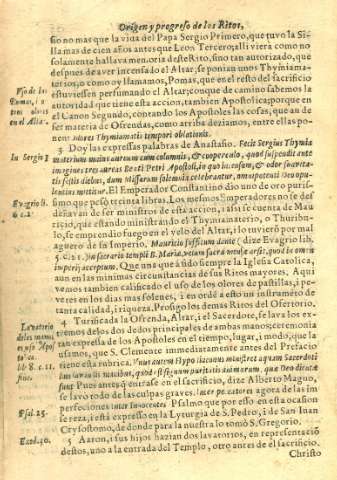 Origen y progreso de los Ritos,
sio no mas que la vida del Papa Sergio Primero, que tuvo la Si-
lla mas de cien años antes que Leon Tercero; alli vierà como no
solamente hallava memoria deste Rito, sino tan autorizado, que
despues de aver incensado el Altar, se ponian unos Thymiama-
terios, o como oy llamamos, Pomas, que en el resto del sacrificio
estuviessen perfumando el Altar; con que de camino sabemos la
autoridad que tiene esta accion, tambien Apostolica; porque en
el Canon Segundo, contando los Apostoles las cosas, que an de
ser materia de Ofrendas, como arriba deziamos, entre ellas po-
nen: Thymiamatis tempori oblationis.
3 Doy las expressas palabras de Anastasio. Fecit Sergius Thymia
In Sergio I
materium maius aureum cum columnis, & coopercolo, quod suspendit ante
imagines tres aureas Beati Petri Apostoli, in quo incensum, & odor suavita-
tis festis diebus, dum Missarum solemnia celebrantur, omnipotenti Deo opu-
lentius mittitur. El Emperador Constantino dio uno de oro puris-
simo que pesò treinta libras. Los mesmos Emperadores no se des
Evagrio li.
6 c. 21
deñavan de ser ministros de esta accion, i assi se cuenta de Mau-
ricio, que estando ministrando el Thymiamaterio, o Thuribu-
lo, se emprendio fuego en el velo del Altar, i lo tuvierò por mal
aguero de su Imperio. Mauricio suffitum dante (dize Evagrio lib.
Que mas que à sido siempre la Iglesia Catolica,
aun en las minimas circunstancias de sus Ritos mayores. Aqui
vemos tambien calificado el uso de los olores de pastillas, i pe-
veres en los dias mas solenes, i en orden a esto un instrumeto de
tanta calidad, i riqueza. Prosigo los demas Ritos del Ofertorio.
4 Turificada la Ofrenda, Altar, i el Sacerdote, se lava los ex-
Lavatorio
tremos de los dos dedos principales de ambas manos; ceremonia
tan expressa de los Apostoles en el tiempo, lugar, i modo, que la
usamos, que S. Clemente immediatamente antes del Prefacio
lib 8. c. 11.
tiene esta rubrica.
Pues antes q̃ entrasse en el sacrificio, dize Alberto Magno,
se lavò todo de las culpas graves. Lavo pecatores agora de las im
perfecciones inter innocentes Psalmo que por esso en esta ocasion
Psal. 25.
se reza, i està expresso en la Lyturgia de S. Pedro, i de San Iuan
Crysostomo, de donde para la nuestra lo tomò S. Gregorio.
Exod. 30.
5 Aaron, i sus hijos hazian dos lavatorios, en representaciò
destos, uno a la entrada del Templo, otro antes de el sacrificio.
Christo